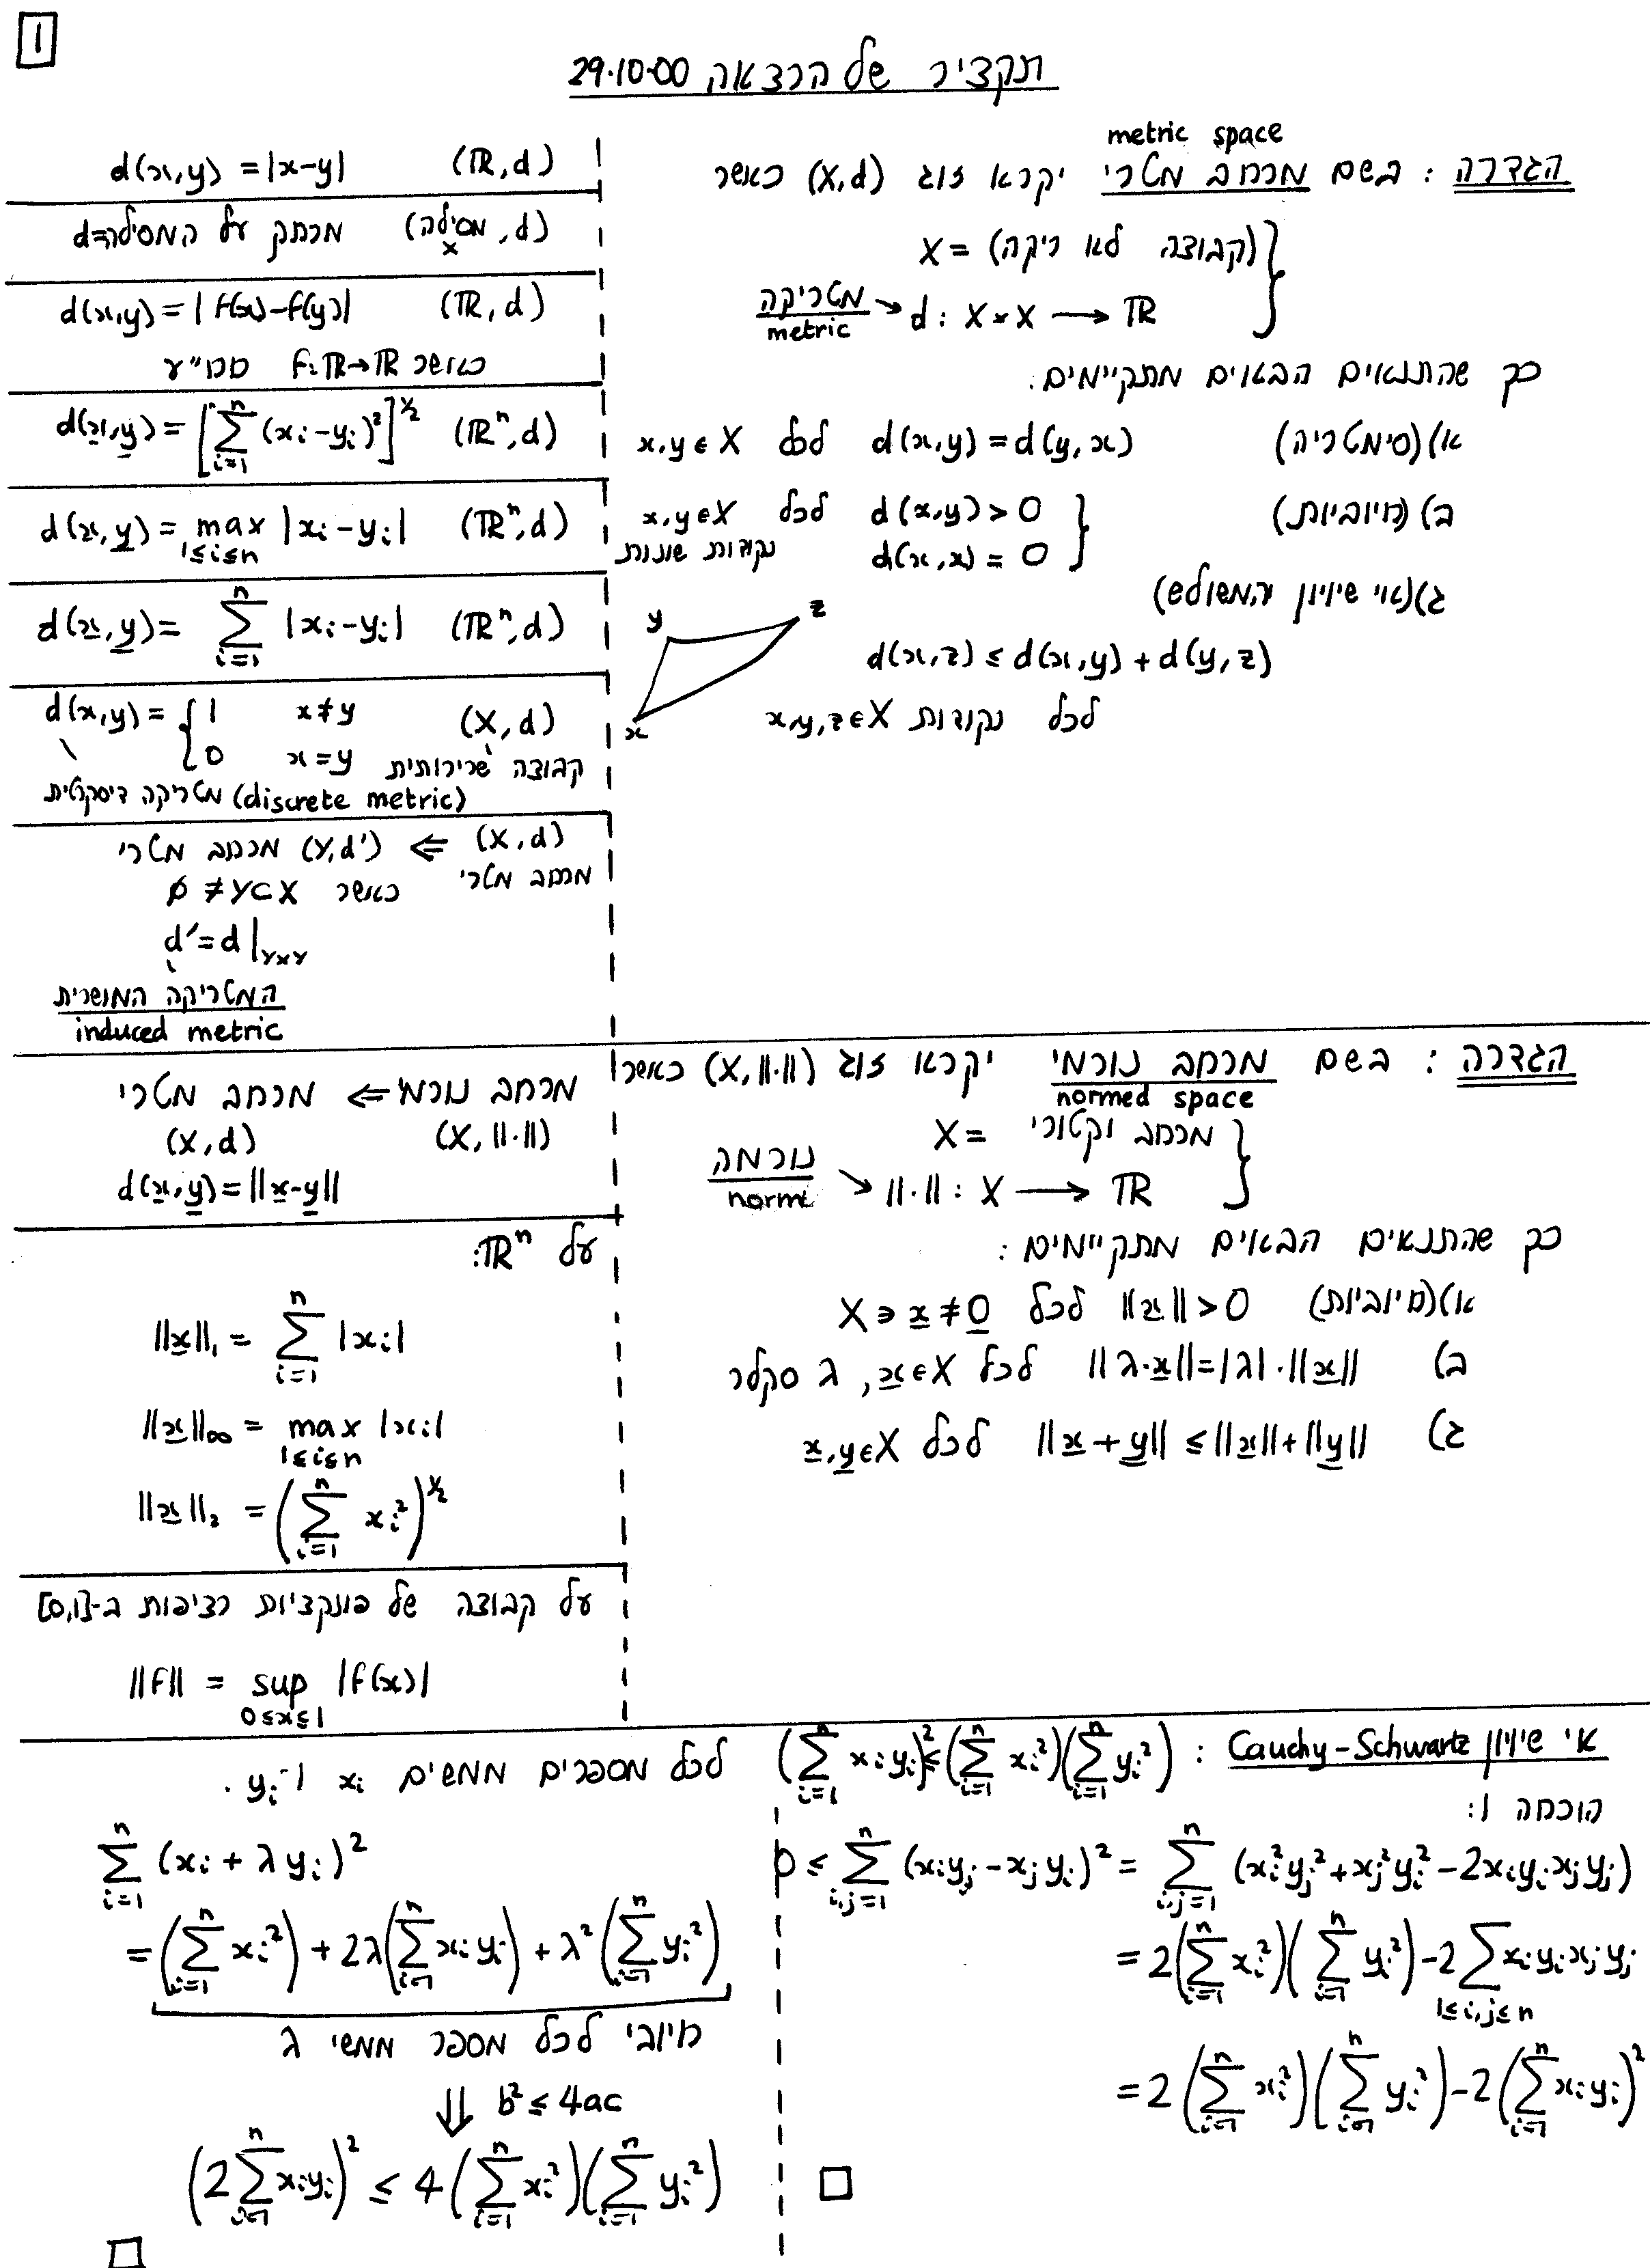 1
תקציר של הרצאה 29.10.00
metric space
הגדרה : בשם מרחב מטרי יקרא זוג (X,d) כאשר
X = (קבוצה לא ריקה)
מטריקה → d : X × X → ℝ
metric
כך שהתנאים הבאים מתקיימים:
א)(סימטריה) d(x,y) = d(y,x) לכל x,y ∈ X
ב)(חיוביות) d(x,y) > 0 לכל x,y ∈ X
d(x,x) = 0 נקודות שונות
ג)(אי שיויון המשולש)
y z
d(x,z) ≤ d(x,y) + d(y,z)
x
לכל נקודות x,y,z ∈ X
(ℝ,d) d(x,y) = |x-y|
(מסילה, d) מרחק על המסילה=d
x
(ℝ,d) d(x,y) = |f(x)-f(y)|
כאשר f:ℝ→ℝ חח"ע
(ℝⁿ,d) d(x,y) = [∑_{i=1}^{n} (x_i-y_i)²]^{1/2}
(ℝⁿ,d) d(x,y) = max_{1≤i≤n} |x_i-y_i|
(ℝⁿ,d) d(x,y) = ∑_{i=1}^{n} |x_i-y_i|
(X,d) d(x,y) = { 1 x≠y
0 x=y
קבוצה שרירותית
מטריקה דיסקרטית (discrete metric)
(X,d) ⇐ (Y,d') מרחב מטרי
מרחב מטרי כאשר ∅ ≠ Y ⊂ X
d' = d|_{Y×Y}
המטריקה המושרית
induced metric
הגדרה : בשם מרחב נורמי יקרא זוג (X,||·||) כאשר
normed space
X = מרחב וקטורי
נורמה → ||·|| : X → ℝ
norm
כך שהתנאים הבאים מתקיימים :
א)(חיוביות) ||x|| > 0 לכל X ∋ x ≠ 0
ב) ||λ·x|| = |λ|·||x|| לכל x∈X, λ סקלר
ג) ||x+y|| ≤ ||x||+||y|| לכל x,y∈X
מרחב נורמי ⇐ מרחב מטרי
(X,||·||) (X,d)
d(x,y) = ||x-y||
על ℝⁿ:
||x||₁ = ∑_{i=1}^{n} |x_i|
||x||_∞ = max_{1≤i≤n} |x_i|
||x||₂ = (∑_{i=1}^{n} x_i²)^{1/2}
על קבוצה של פונקציות רציפות ב-[0,1]
||f|| = sup_{0≤x≤1} |f(x)|
אי שיויון Cauchy-Schwartz : (∑_{i=1}^{n} x_i y_i)² ≤ (∑_{i=1}^{n} x_i²)(∑_{i=1}^{n} y_i²) לכל מספרים ממשים x_i ו-y_i .
הוכחה 1:
0 ≤ ∑_{i,j=1}^{n} (x_i y_j - x_j y_i)² = ∑_{i,j=1}^{n} (x_i² y_j² + x_j² y_i² - 2x_i y_i x_j y_j)
= 2(∑_{i=1}^{n} x_i²)(∑_{i=1}^{n} y_i²) - 2∑_{1≤i,j≤n} x_i y_i x_j y_j
= 2(∑_{i=1}^{n} x_i²)(∑_{i=1}^{n} y_i²) - 2(∑_{i=1}^{n} x_i y_i)²
∑_{i=1}^{n} (x_i + λy_i)²
= (∑_{i=1}^{n} x_i²) + 2λ(∑_{i=1}^{n} x_i y_i) + λ²(∑_{i=1}^{n} y_i²)
חיובי לכל מספר ממשי λ
⇓ b² ≤ 4ac
(2∑_{i=1}^{n} x_i y_i)² ≤ 4(∑_{i=1}^{n} x_i²)(∑_{i=1}^{n} y_i²)